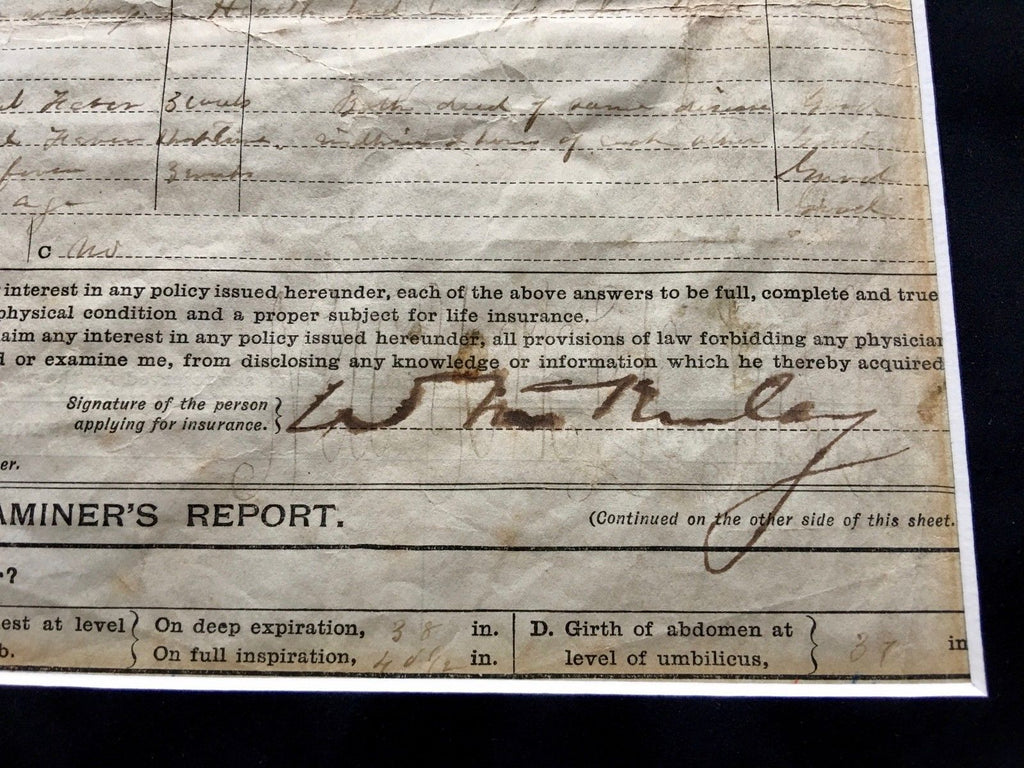 Fever 3 weeks Both died of same disease Good
Fever
fever 3 weeks Good
age Good
c no
interest in any policy issued hereunder, each of the above answers to be full, complete and true
physical condition and a proper subject for life insurance.
aim any interest in any policy issued hereunder, all provisions of law forbidding any physician
d or examine me, from disclosing any knowledge or information which he thereby acquired
Signature of the person
applying for insurance. } W McKinley
er.
AMINER'S REPORT. (Continued on the other side of this sheet.
?
est at level } On deep expiration, 38 in. D. Girth of abdomen at } 37 in
b. On full inspiration, 40 1/2 in. level of umbilicus,